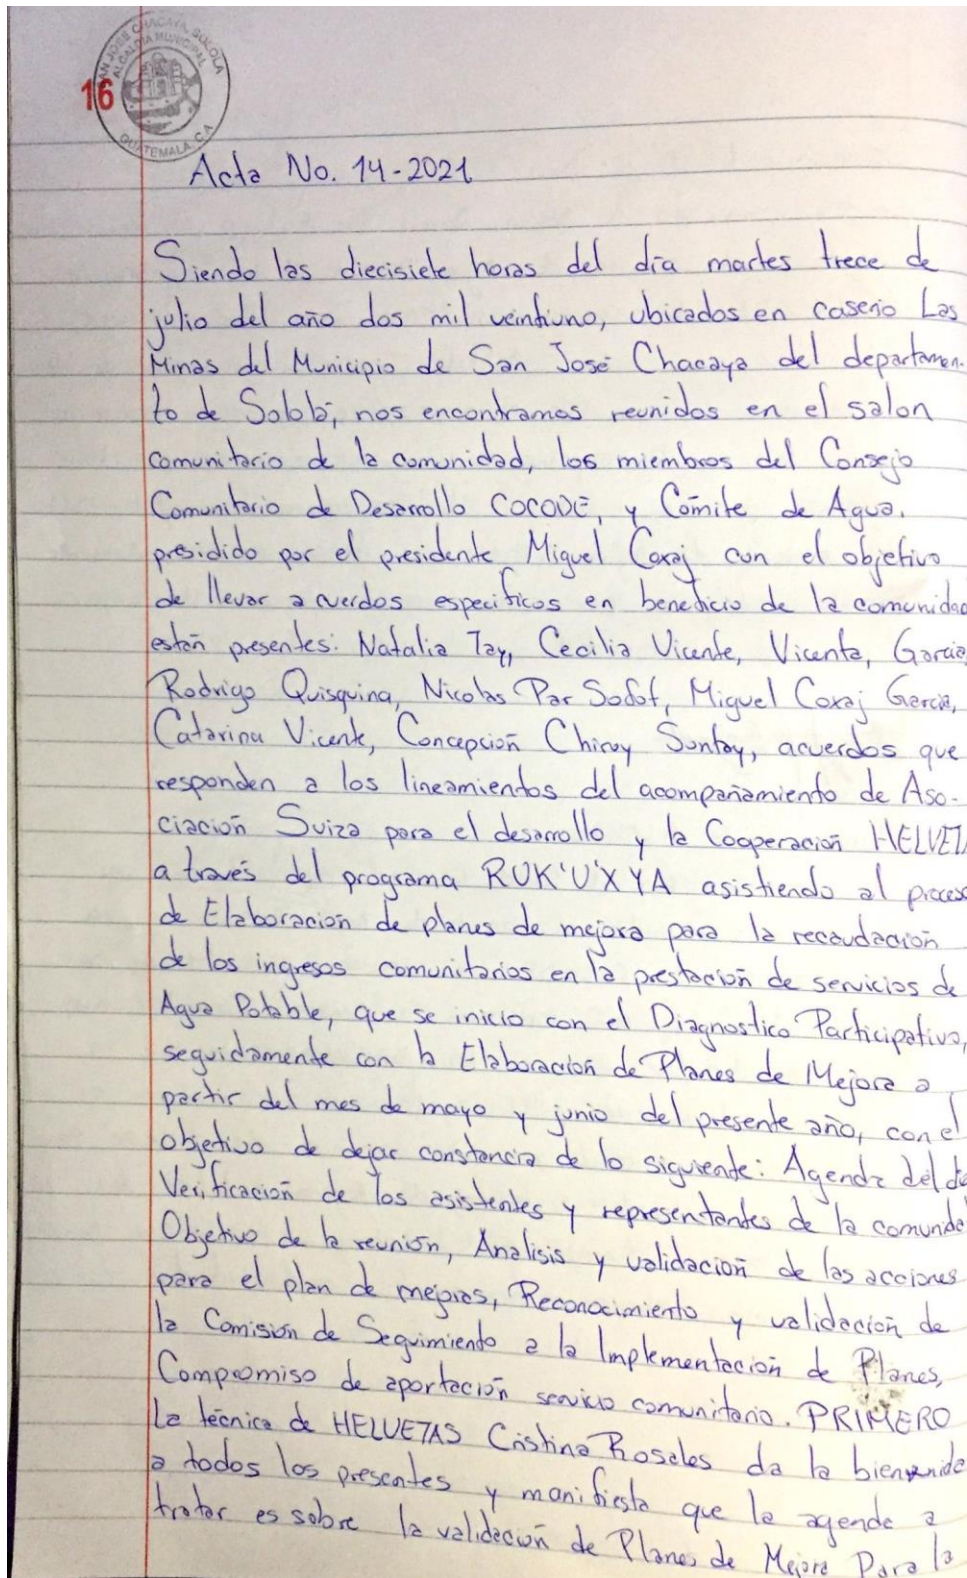 SAN JOSE CHACAYA, SOLOLA
ALCALDIA MUNICIPAL
GUATEMALA, C.A.
16
Acta No. 14-2021
Siendo las diecisiete horas del día martes trece de
julio del año dos mil veintiuno, ubicados en caserio Las
Minas del Municipio de San José Chacaya del departamen-
to de Sololá, nos encontramos reunidos en el salon
comunitario de la comunidad, los miembros del Consejo
Comunitario de Desarrollo COCODE, y Cómite de Agua.
presidido por el presidente Miguel Coxaj con el objetivo
de llevar acuerdos especificos en beneficio de la comunidad
están presentes: Natalia Tay, Cecilia Vicente, Vicenta, Garcia,
Rodrigo Quisquina, Nicolas Par Miguel Coxaj Garcia,
Catarina Vicente, Concepción Chiroy Suntay, acuerdos que
responden a los lineamientos del acompañamiento de Aso-
ciación Suiza para el desarrollo y la Cooperación HELVET
a través del programa RUK'U'X YA asistiendo al proces
de Elaboración de planes de mejora para la recaudación
de los ingresos comunitarios en la prestación de servicios de
Agua Potable, que se inicio con el Diagnostico Participativo,
seguidamente con la Elaboración de Planes de Mejora a
partir del mes de mayo y junio del presente año, con el
objetivo de dejar constancia de lo siguiente: Agenda del dí
Verificación de los asistentes y representantes de la comunida
Objetivo de la reunión, Analisis y validación de las acciones
para el plan de mejoras, Reconocimiento y validación de
la Comisión de Seguimiento a la Implementación de Planes,
Compromiso de aportación servicio comunitario. PRIMERO
La técnica de HELVETAS Cristina Rosales da la bienvenida
a todos los presentes y manifiesta que la agenda a
tratar es sobre la validación de Planes de Mejora Para la